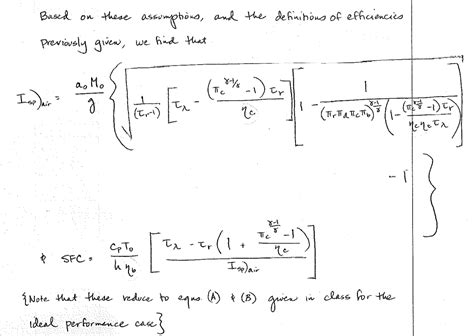 Based on these assumptions, and the definitions of efficiencies
previously given, we find that
I_sp)_air = a_o M_o / g { √( 1/(τ_r-1) [ τ_λ - (π_c^{γ-1/γ} - 1) τ_r / η_c ] [ 1 - 1 / ( (π_r π_d π_c π_b)^{γ-1/γ} ( 1 - (π_c^{γ-1/γ} - 1) τ_r / η_c η_e τ_λ ) ) ] )
- 1 }
& SFC = c_p T_o / h η_b [ ( τ_λ - τ_r ( 1 + (π_c^{γ-1/γ} - 1) / η_c ) ) / I_sp)_air ]
{Note that these reduce to eqns (A) & (B) given in class for the
ideal performance case}